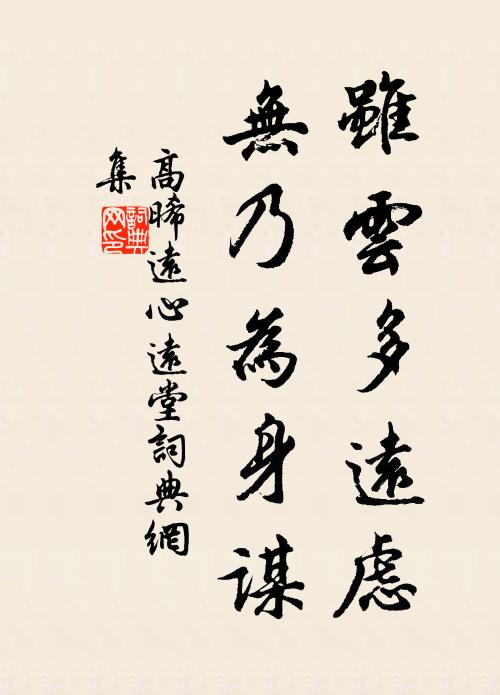 雖雲多遠慮
無乃為身謀
高晞遠心遠堂詞典網
集
詞典網印